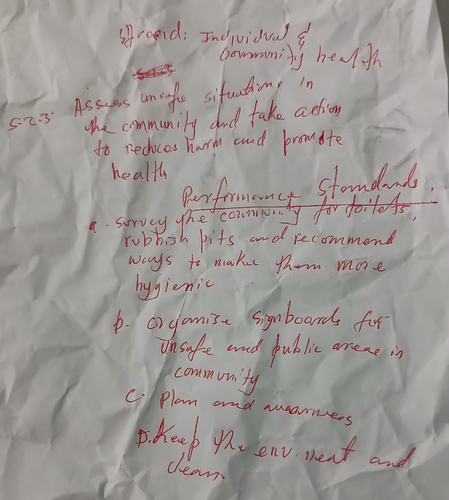 Strand: Individual &
Community health
5.2.3. Assess unsafe situations in
the community and take action
to reduces harm and promote
health
Performance Standards.
a. survey the community for toilets,
rubbish pits and recommend
ways to make them more
hygienic
b. organise signboards for
unsafe and public areas in
community
C. Plan and awarness
D. Keep the env. neat and
clean